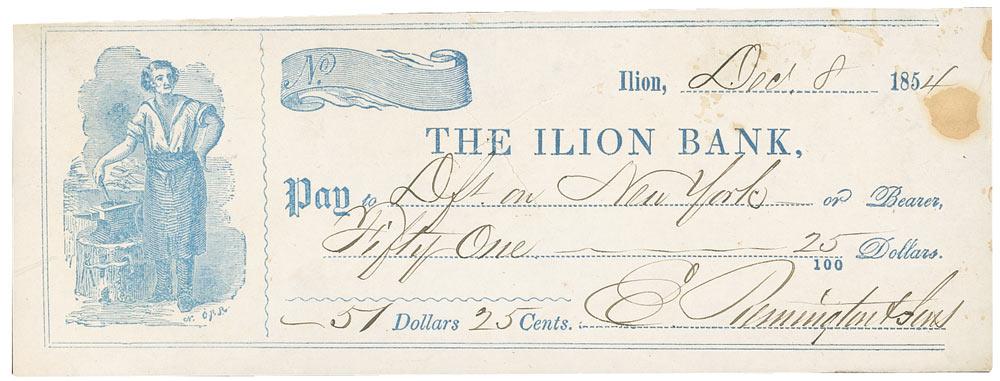 No.
Ilion, Dec. 8 1854
THE ILION BANK,
Pay to Dft on New York or Bearer,
Fifty One 25/100 Dollars.
51 Dollars 25 Cents. E Remington & Sons